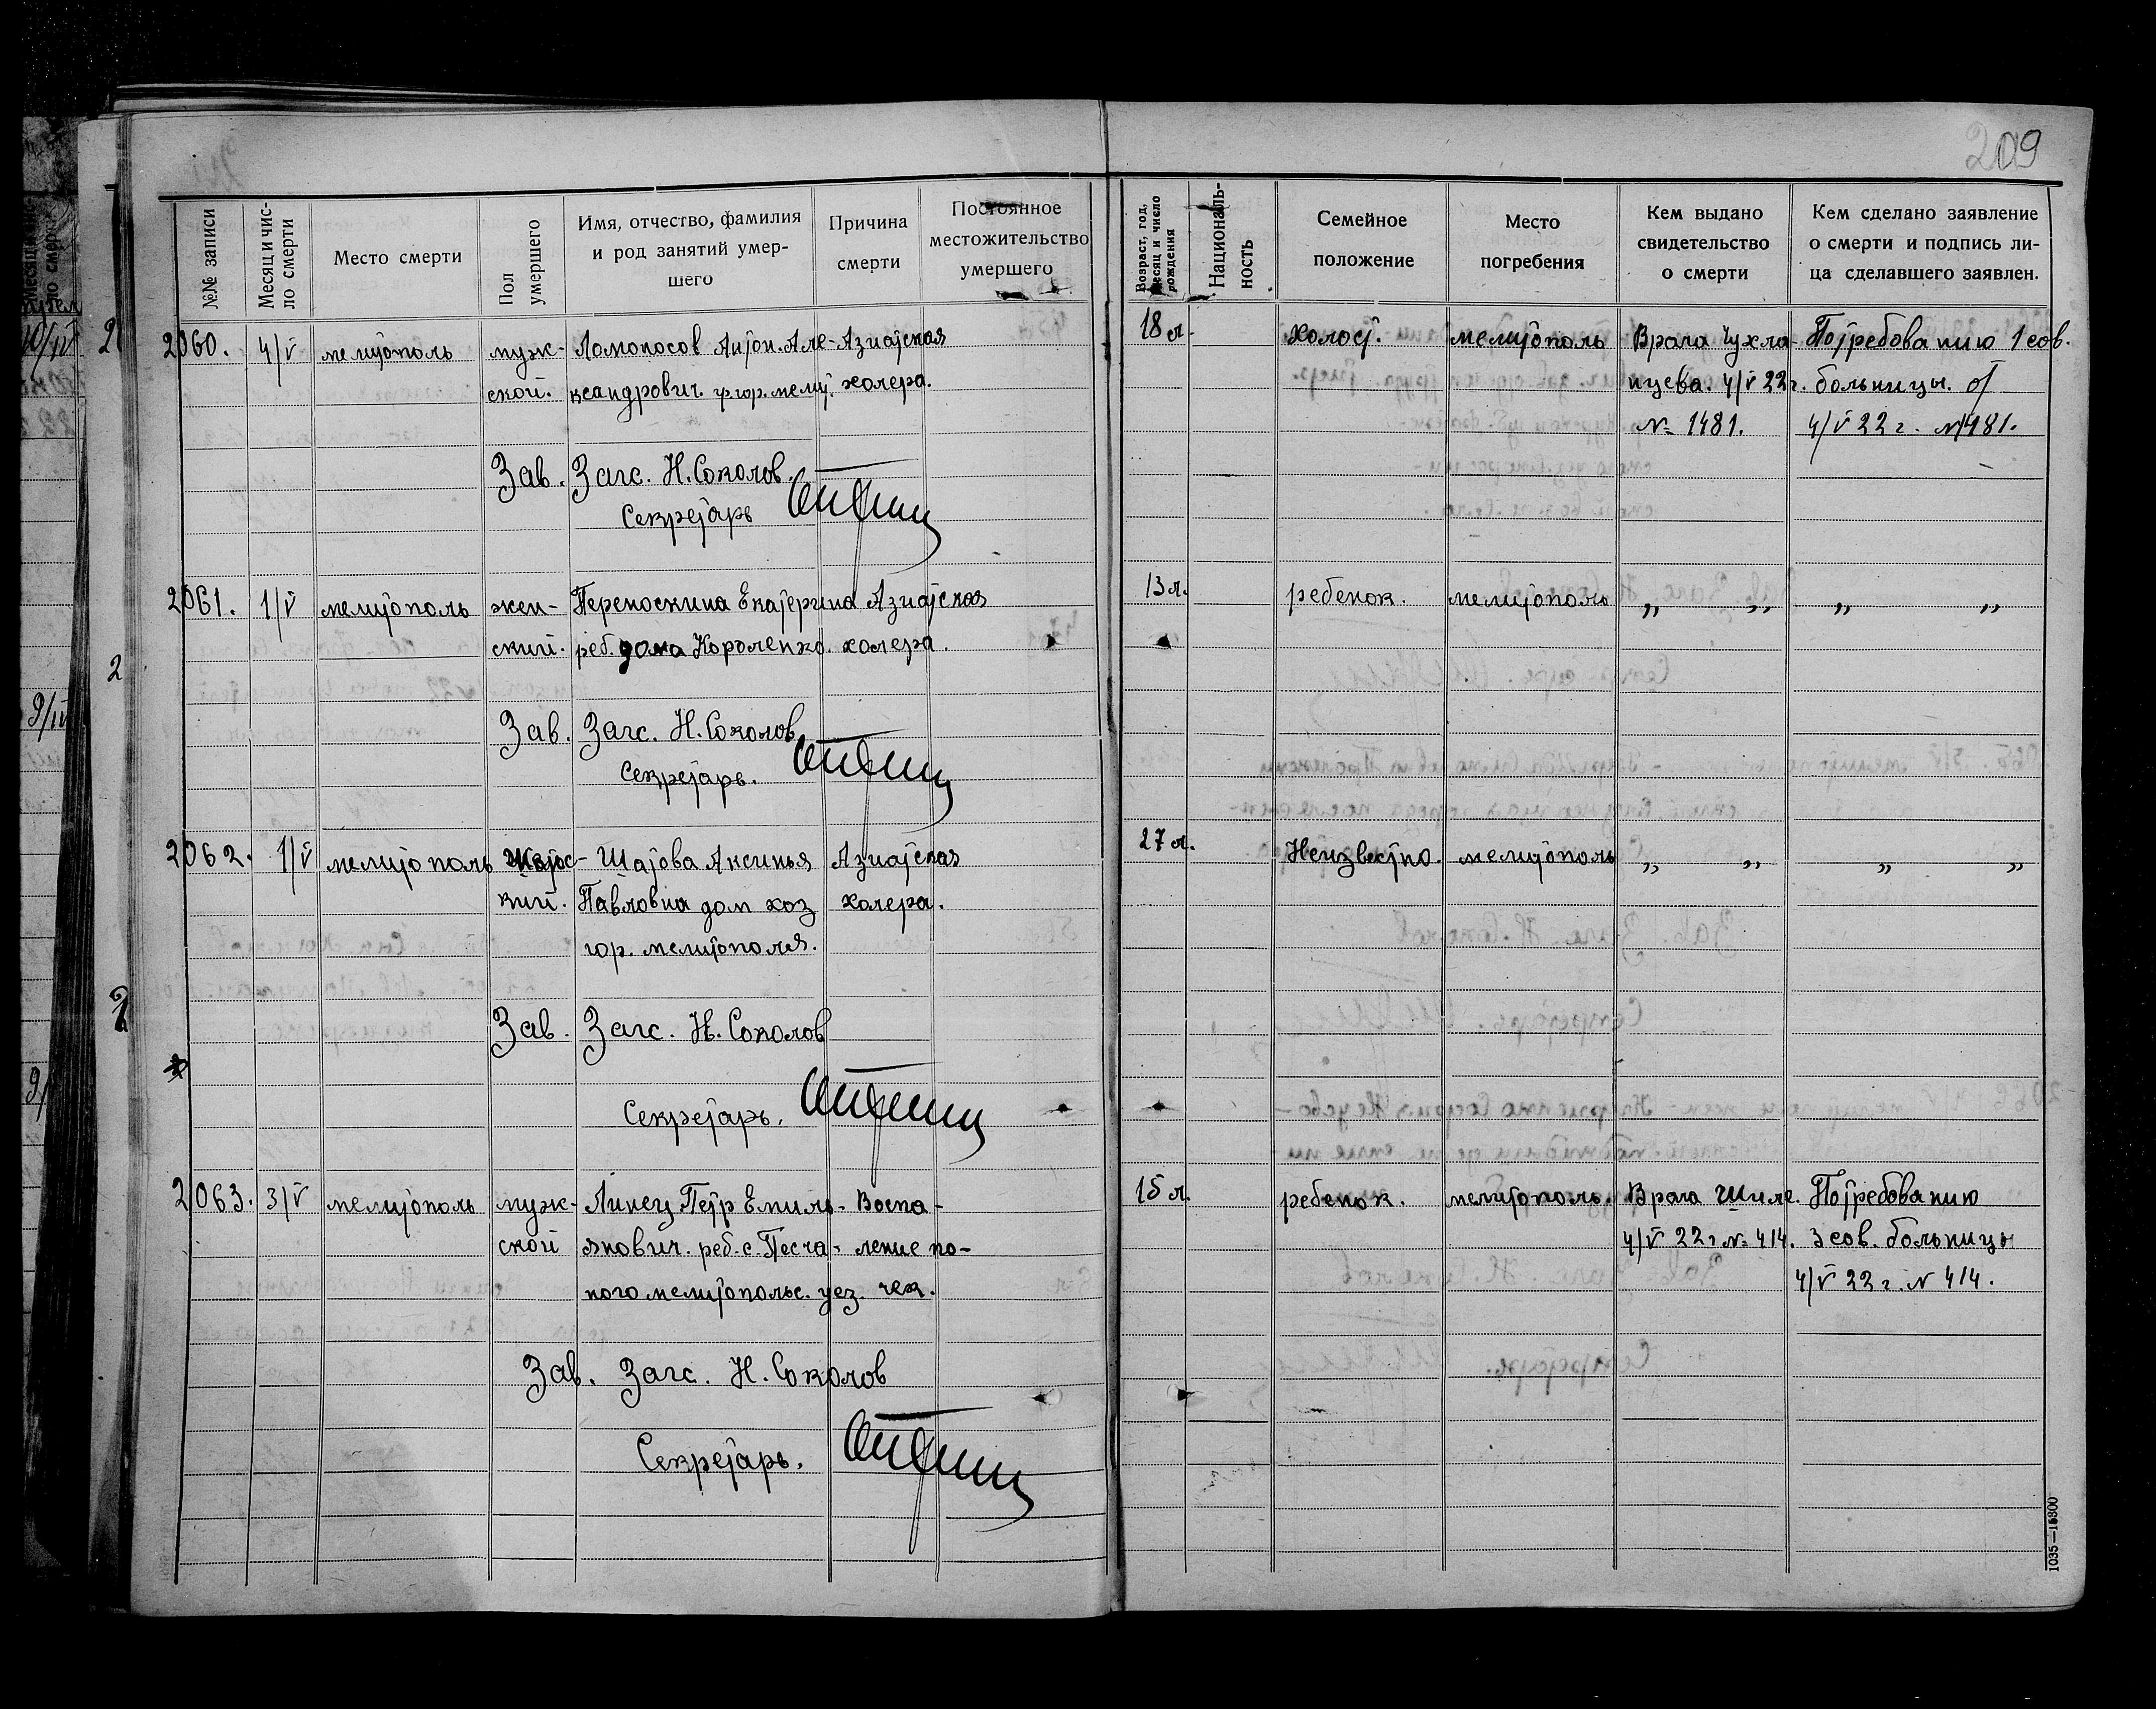 209
№№ записи
Месяц и чис-
ло смерти
Место смерти
Пол
умершего
Имя, отчество, фамилия
и род занятий умер-
шего
Причина
смерти
Постоянное
местожительство
умершего
Возраст, год,
месяц и число
рождения
Националь-
ность
Семейное
положение
Место
погребения
Кем выдано
свидетельство
о смерти
Кем сделано заявление
о смерти и подпись ли-
ца сделавшего заявлен.
2060. 4/V мелитополь муж- Ломоносов Антон. Але- Азиатская 18 л. холост. мелитополь Врача Чухла- По требованию 1 сов.
ской. ксандрович. гр. гор. мелит. холера. нцева. 4/V 22 г. больницы. от
№ 1481. 4/V 22 г. №1481.
Зав. Загс. Н. Соколов.
Секретарь
2061. 1/V мелитополь жен- Переноскина Екатерина Азиатская 13 л. ребенок. мелитополь „ „ „ „
ский. реб. дома Короленко. холера.
Зав. Загс. Н. Соколов
Секретарь.
2062. 1/V мелитополь Шатова Аксинья Азиатская 27 л. Неизвестно. мелитополь „ „ „ „
кий. Павловна дом хоз холера.
гор. мелитополя.
Зав. Загс. Н. Соколов
Секретарь.
2063. 3/V мелитополь муж- Линец Петр Емиль- Воспа- 15 л. ребенок. мелитополь. Врача Шиле. По требованию
ской янович. реб. с. Песча- ление по- 4/V 22 г № 414. 3 сов. больницы
ного мелитопольс. уез. чек. 4/V 22 г. № 414.
Зав. Загс. Н. Соколов
Секретарь.
1035—15800